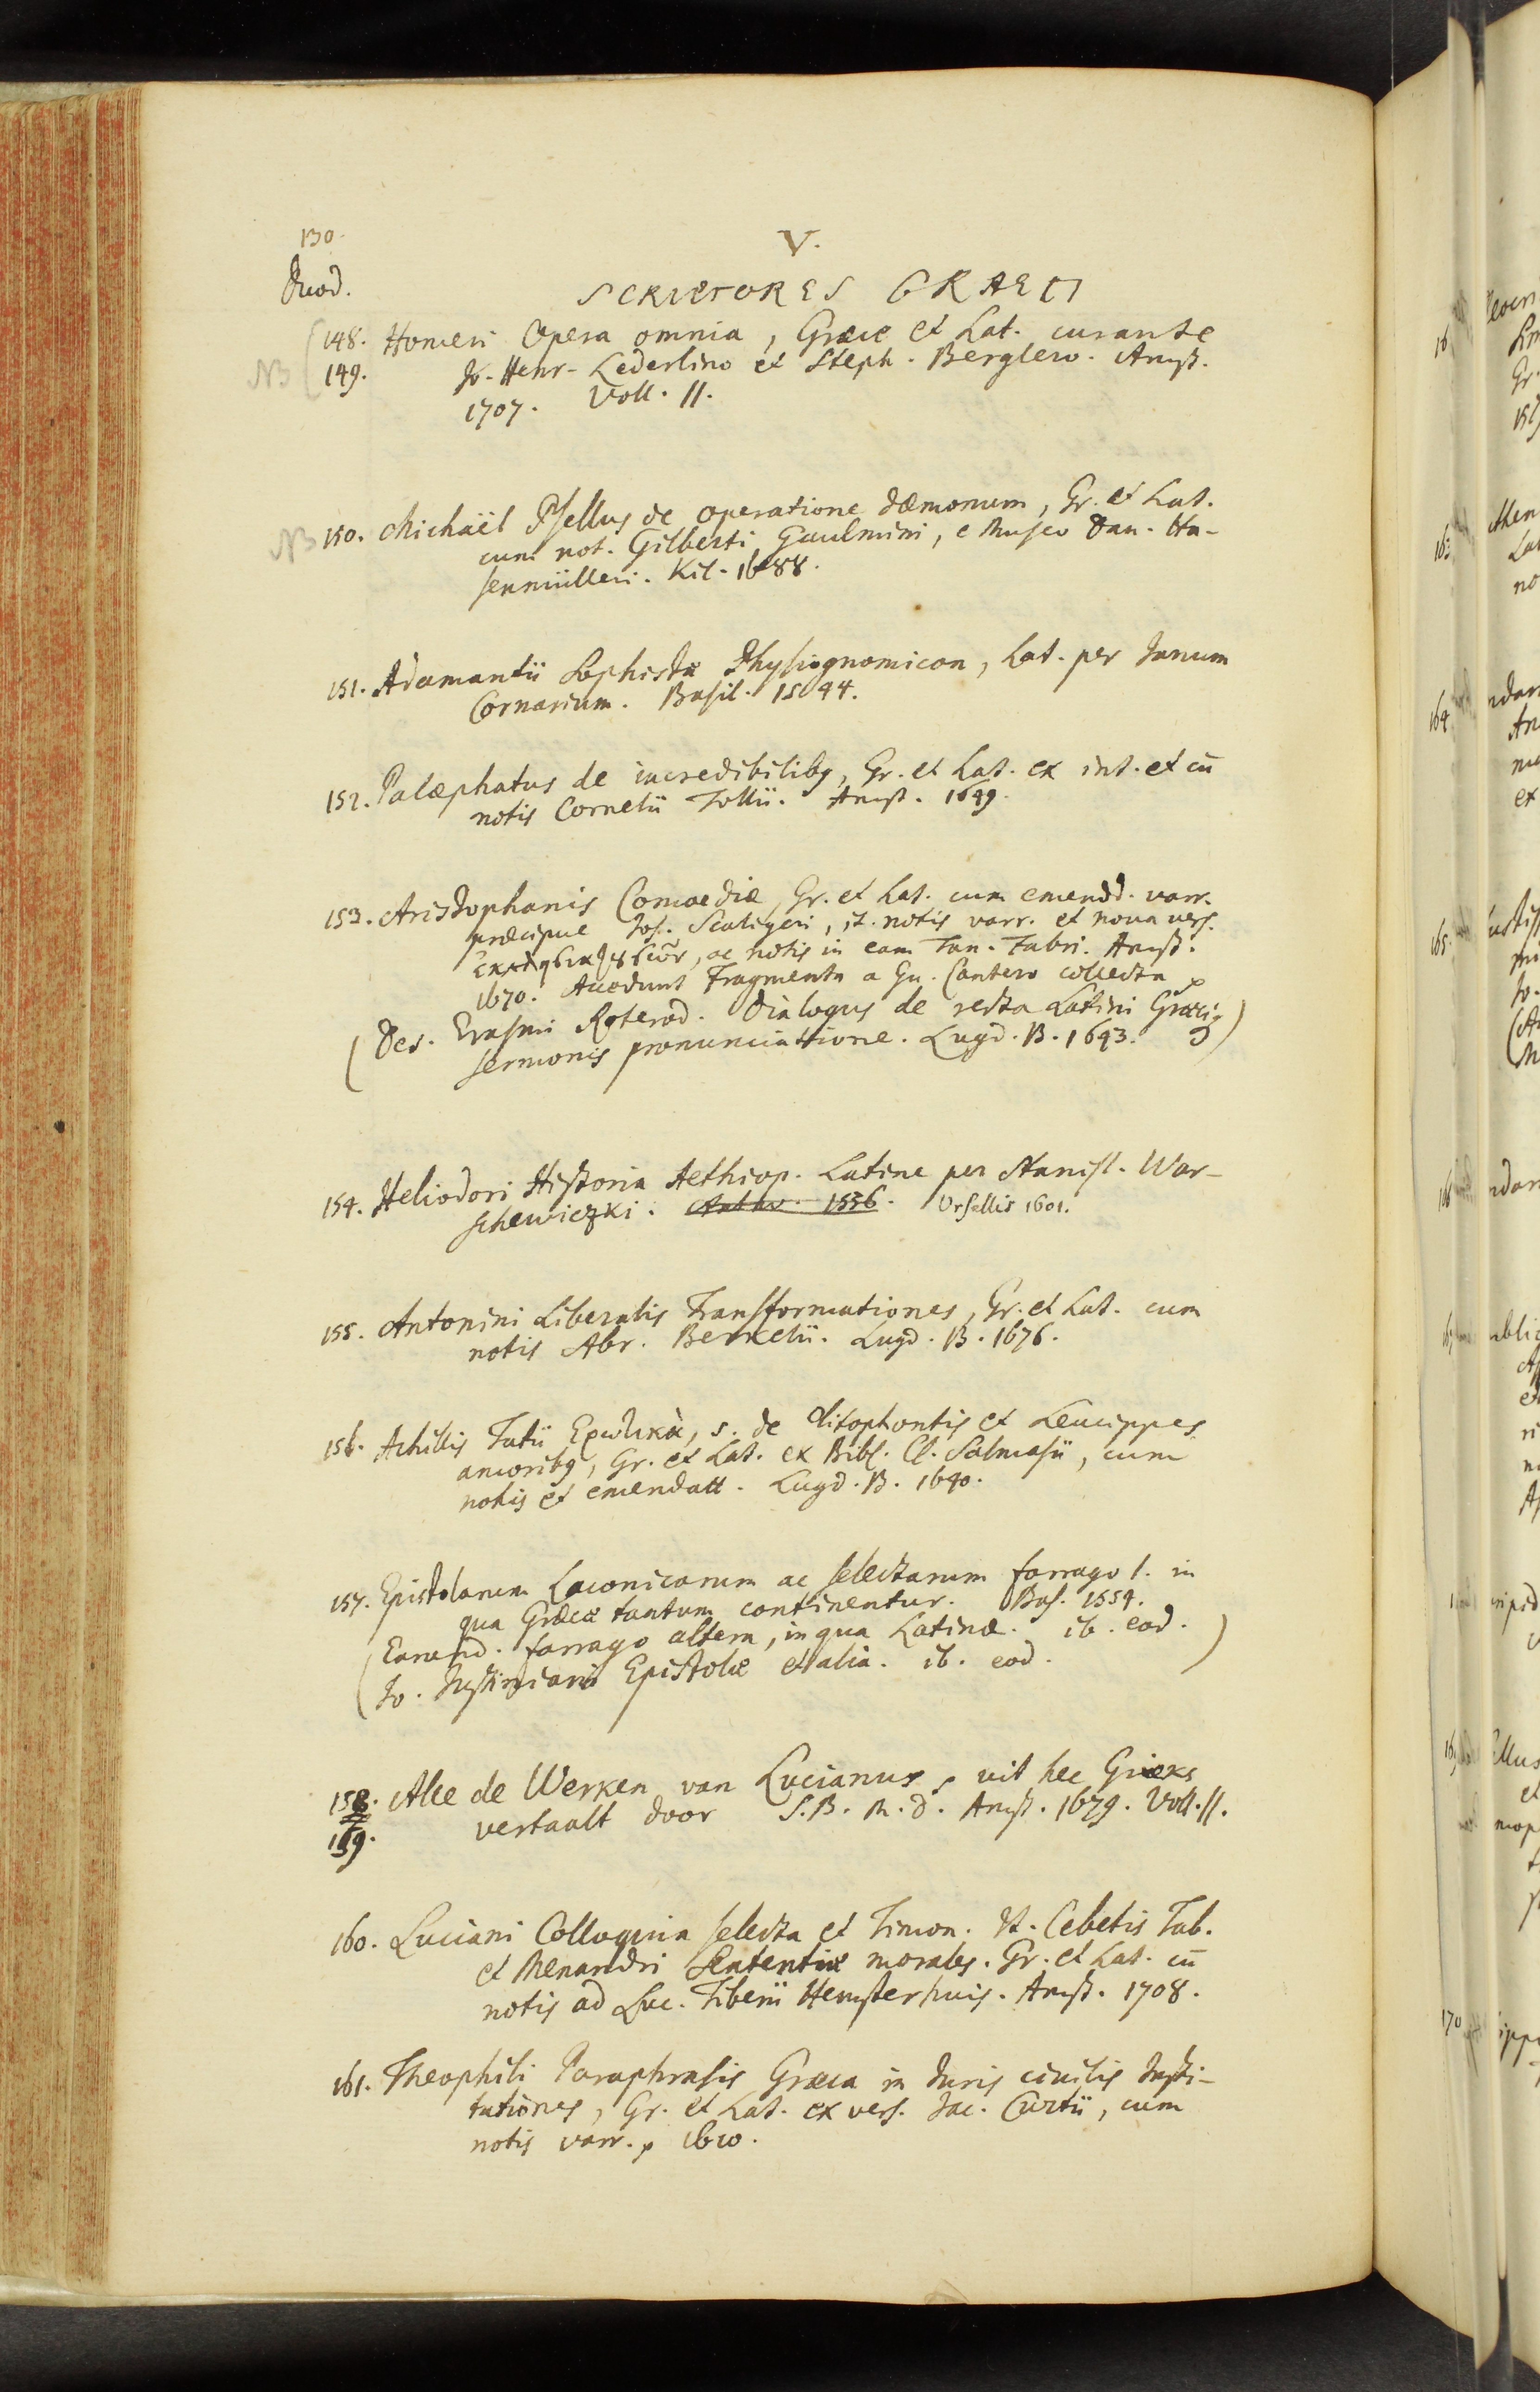 130.
V.
Duod.
SCRIPTORES GRAECI
148. Homeri Opera omnia, Græce et Lat. curante
NB 149. Jo. Henr. Lederlino et Steph. Berglero. Amst.
1707. Voll. II.
NB 150. Michaël Psellus de operatione dæmonum, Gr. et Lat.
cum not. Gilberti Gaulmini, e Museo Dan. Ha-
senmülleri. Kil. 1688.
151. Adamantii Sophistæ Physiognomicon, Lat. per Janum
Cornarium. Basil. 1544.
152. Palæphatus de incredibilibq, Gr. et Lat. ex int. et cū
notis Cornelii Tollii. Amst. 1649.
153. Aristophanis Comoediæ, Gr. et Lat. cum emendd. varr.
præcipue Jos. Scaligeri, it. notis varr. et noua vers.
ac notis in eam Tan. Fabri. Amst.
1670. Accedunt Fragmenta a Gu. Cantero collecta
(Des. Erasmi Roterod. Dialogus de recta Latini Græciq
sermonis pronunciatione. Lugd. B. 1643.)
154. Heliodori Historia Aethiop. Latine per Stanisl. War-
schewiczki. Antw. 1556. Ursellis 1601.
155. Antonini Liberalis Transformationes, Gr. et Lat. cum
notis Abr. Berkelii. Lugd. B. 1676.
156. Achillis Tatii Ερωτικὰ, s. de Clitophontis et Leucippes
amoribq, Gr. et Lat. ex Bibl. Cl. Salmasii, cum
notis et emendatt. Lugd. B. 1640.
157. Epistolarum Laconicarum ac selectarum farrago 1. in
qua Græcæ tantum continentur. Bas. 1554.
(Earund. farrago altera, in qua Latinæ. ib. eod.
Jo. Justiniani Epistolæ et alia. ib. eod.)
158. Alle de Werken van Lucianus, uit het Grieks
159. vertaalt door S. B. M. D. Amst. 1679. Voll. II.
160. Luciani Colloquia selecta et Timon. It. Cebetis Tab.
et Menandri Sententiæ morales. Gr. et Lat. cū
notis ad Luc. Tiberii Hemsterhuis. Amst. 1708.
161. Theophili Paraphrasis Græca in Juris ciuilis Insti-
tutiones, Gr. et Lat. ex vers. Jac. Curtii, cum
notis varr. 1610.